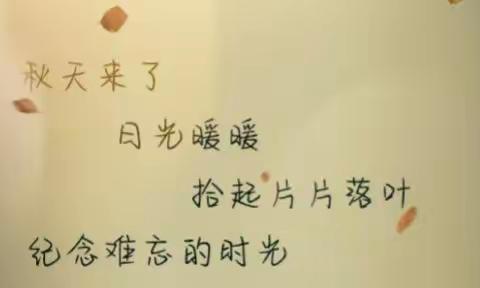 秋天来了
日光暖暖
拾起片片落叶
纪念难忘的时光